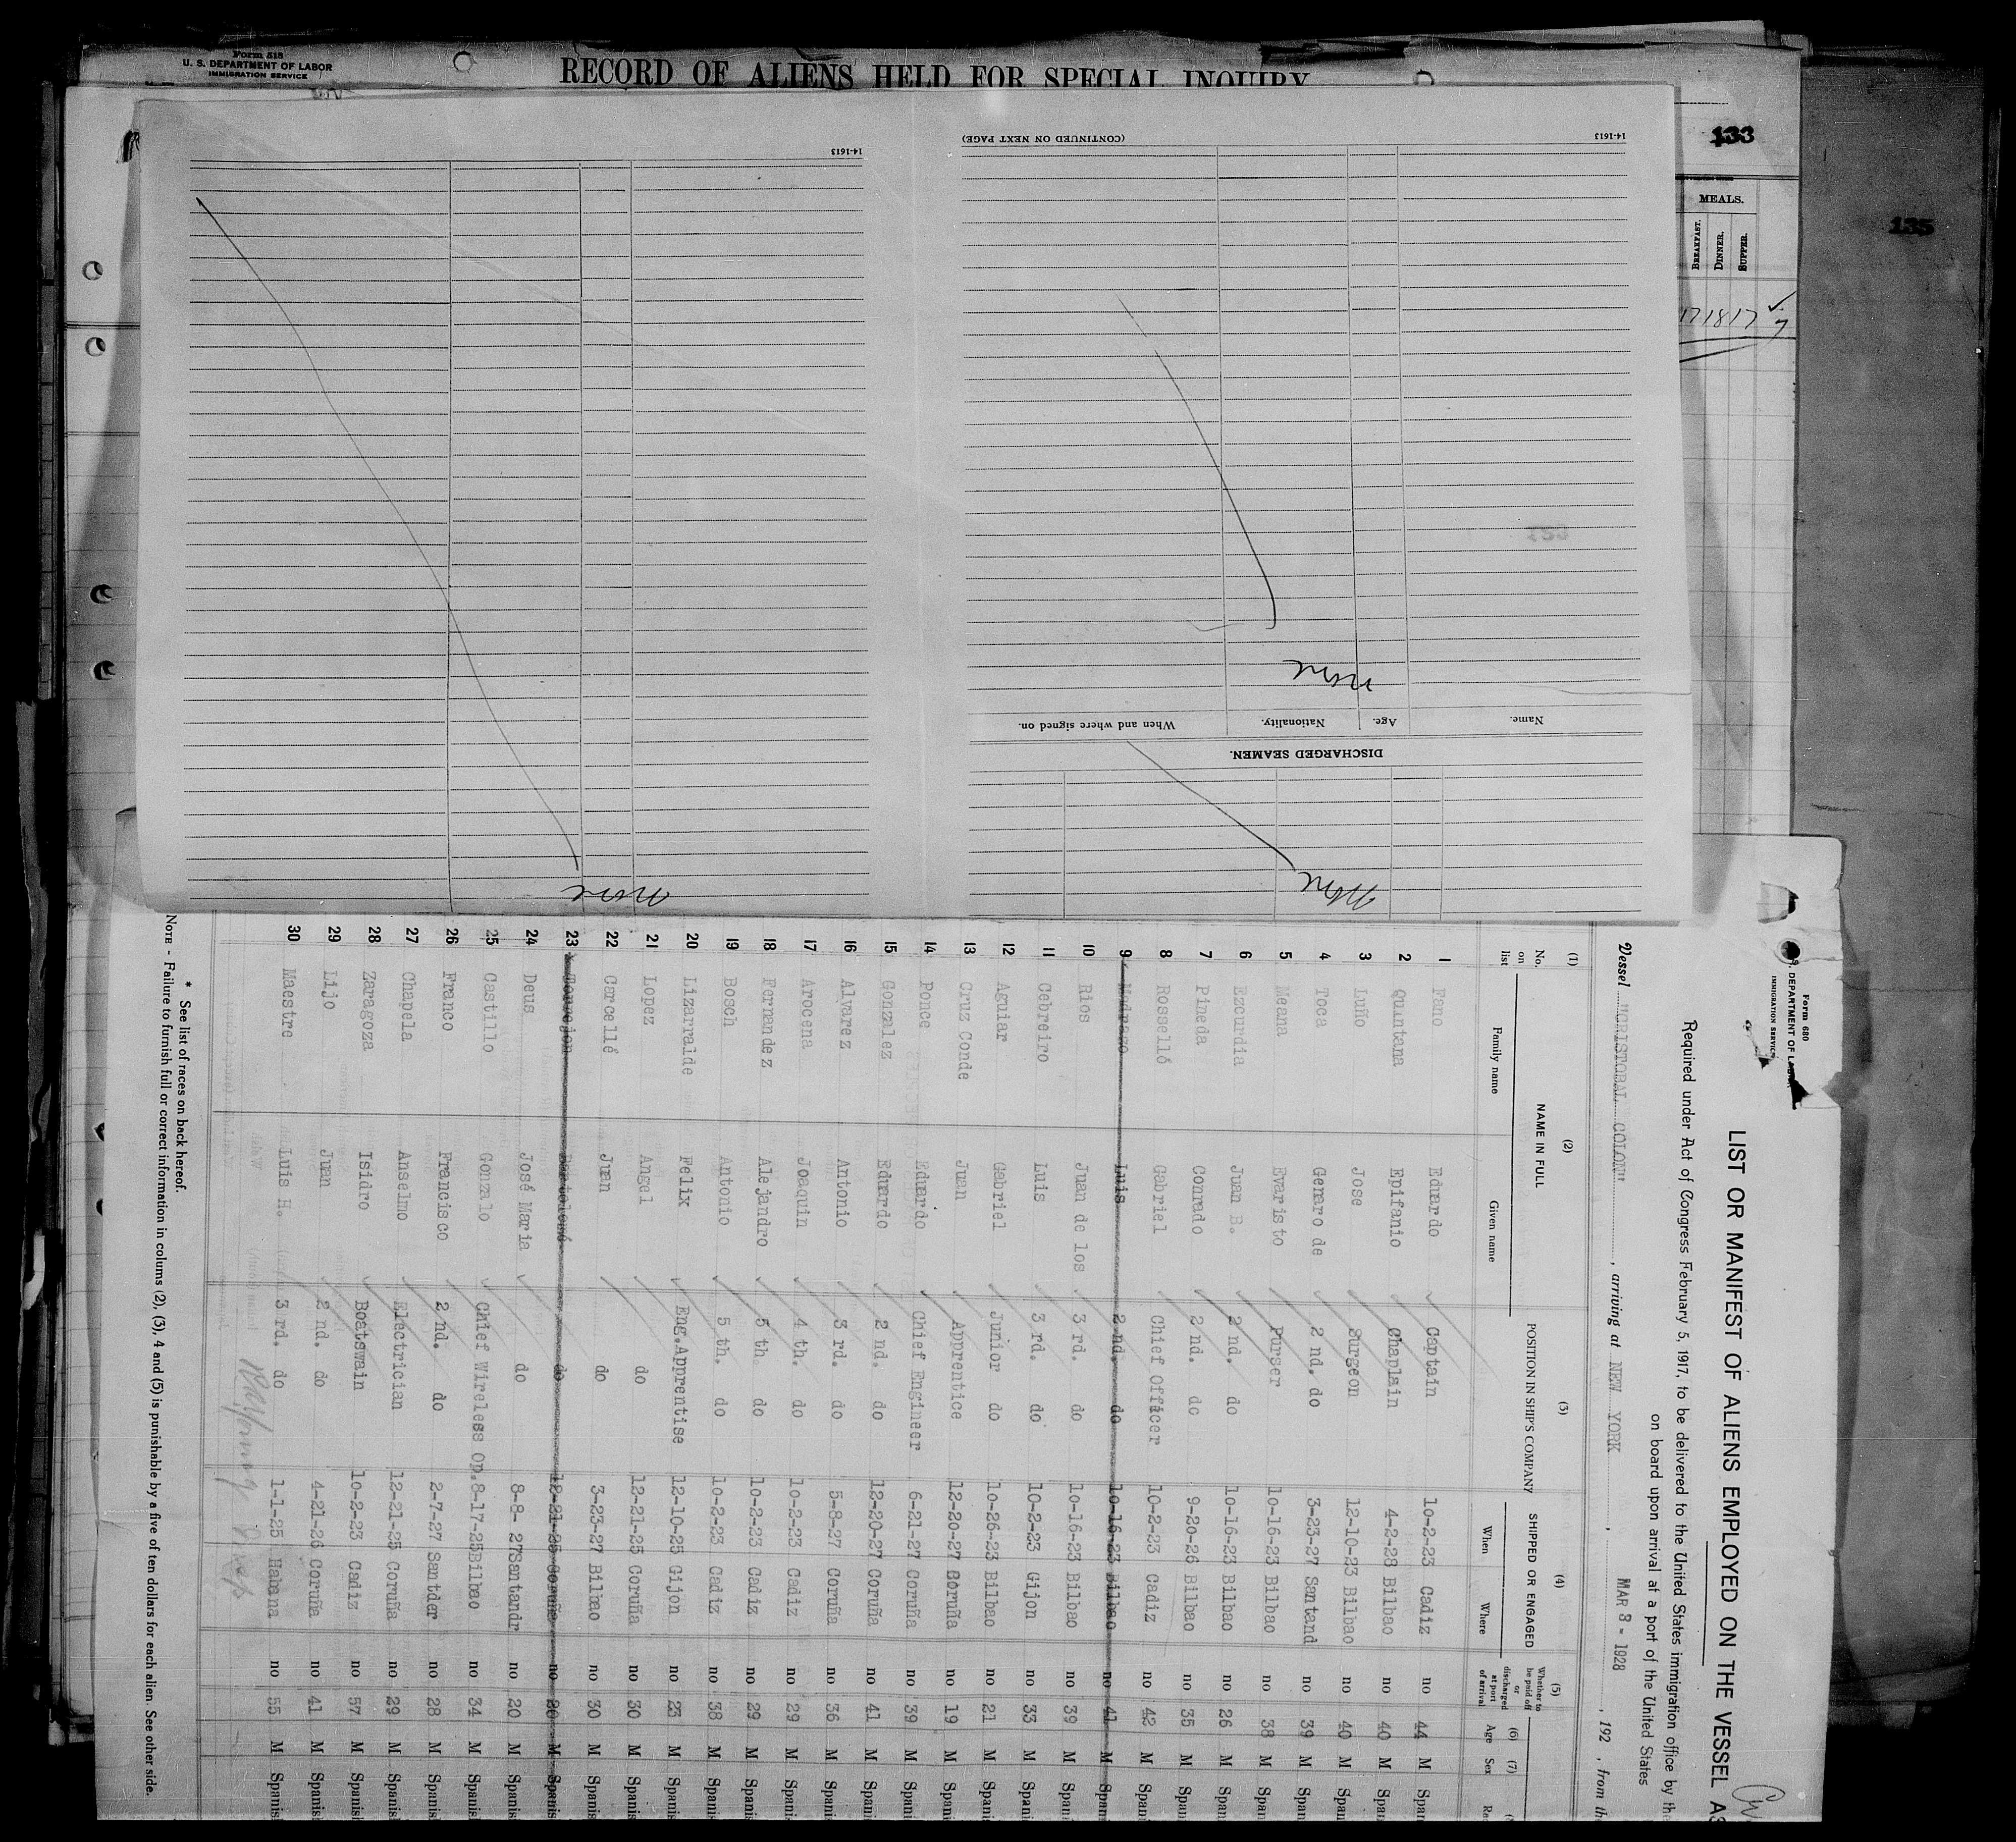 Form 518
U. S. DEPARTMENT OF LABOR
IMMIGRATION SERVICE
RECORD OF ALIENS HELD FOR SPECIAL INQUIRY
133
135
MEALS.
BREAKFAST. DINNER. SUPPER.
14-1613
(CONTINUED ON NEXT PAGE)
14-1613
none
DISCHARGED SEAMEN.
Name. Age. Nationality. When and where signed on.
none
none
Form 680
DEPARTMENT OF
IMMIGRATION SERVICE
LIST OR MANIFEST OF ALIENS EMPLOYED ON THE VESSEL AS
Required under Act of Congress February 5, 1917, to be delivered to the United States immigration office by the
on board upon arrival at a port of the United States
Vessel "CRISTOBAL COLON", arriving at NEW YORK, MAR 8 - 1928, 192 , from the
(1) (2) (3) (4) (5) (6) (7)
No. on list NAME IN FULL POSITION IN SHIP'S COMPANY SHIPPED OR ENGAGED Whether to be paid off or discharged at port of arrival Age Sex
Family name Given name When Where
1 Fano Eduardo Captain 10-2-23 Cadiz no 44 M Span
2 Quintana Epifanio Chaplain 4-2-28 Bilbao no 40 M Span
3 Luño Jose Surgeon 12-10-23 Bilbao no 40 M Span
4 Toca Genaro de 2 nd. do 3-23-27 Santand no 39 M Span
5 Meana Evaristo Purser 10-16-23 Bilbao no 38 M Span
6 Ezcurdia Juan B. 2 nd. do 10-16-23 Bilbao no 26 M Span
7 Pineda Conrado 2 nd. do 9-20-26 Bilbao no 35 M Span
8 Rosselló Gabriel Chief Officer 10-2-23 Cadiz no 42 M Span
9 Madrazo Luis 2 nd. do 10-16-23 Bilbao no 41 M Span
10 Rios Juan de los 3 rd. do 10-16-23 Bilbao no 39 M Spani
11 Cebreiro Luis 3 rd. do 10-2-23 Gijon no 33 M Spani
12 Aguiar Gabriel Junior do 10-26-23 Bilbao no 21 M Spani
13 Cruz Conde Juan Apprentice 12-20-27 Coruña no 19 M Spani
14 Ponce Eduardo Chief Engineer 6-21-27 Coruña no 39 M Spani
15 Gonzalez Eduardo 2 nd. do 12-20-27 Coruña no 41 M Spani
16 Alvarez Antonio 3 rd. do 5-8-27 Coruña no 36 M Spani
17 Arocena Joaquin 4 th. do 10-2-23 Cadiz no 29 M Spani
18 Fernandez Alejandro 5 th do 10-2-23 Cadiz no 29 M Spani
19 Bosch Antonio 5 th. do 10-2-23 Cadiz no 38 M Spani
20 Lizarralde Felix Eng.Apprentise 12-10-25 Gijon no 23 M Spanis
21 Lopez Angel do 12-21-25 Coruña no 30 M Spanis
22 Carcellé Juan do 3-23-27 Bilbao no 30 M Spanis
23 Torrejon Bartolomé do 12-21-25 Coruña no 20 M Spanis
24 Deus José Maria do 8-8- 27Santandr no 20 M Spanis
25 Castillo Gonzalo Chief Wireless Op. 8-17-25Bilbao no 34 M Spanis
26 Franco Francisco 2 nd. do 2-7-27 Santder no 28 M Spanis
27 Chapela Anselmo Electrician 12-21-25 Coruña no 29 M Spanis
28 Zaragoza Isidro Boatswain 10-2-23 Cadiz no 57 M Spanis
29 Lijo Juan 2 nd. do 4-21-26 Coruña no 41 M Spanis
30 Maestre Luis H. 3 rd. do 1-1-25 Habana no 55 M Spanis
* See list of races on back hereof.
NOTE - Failure to furnish full or correct information in colums (2), (3), 4 and (5) is punishable by a five of ten dollars for each alien. See other side.